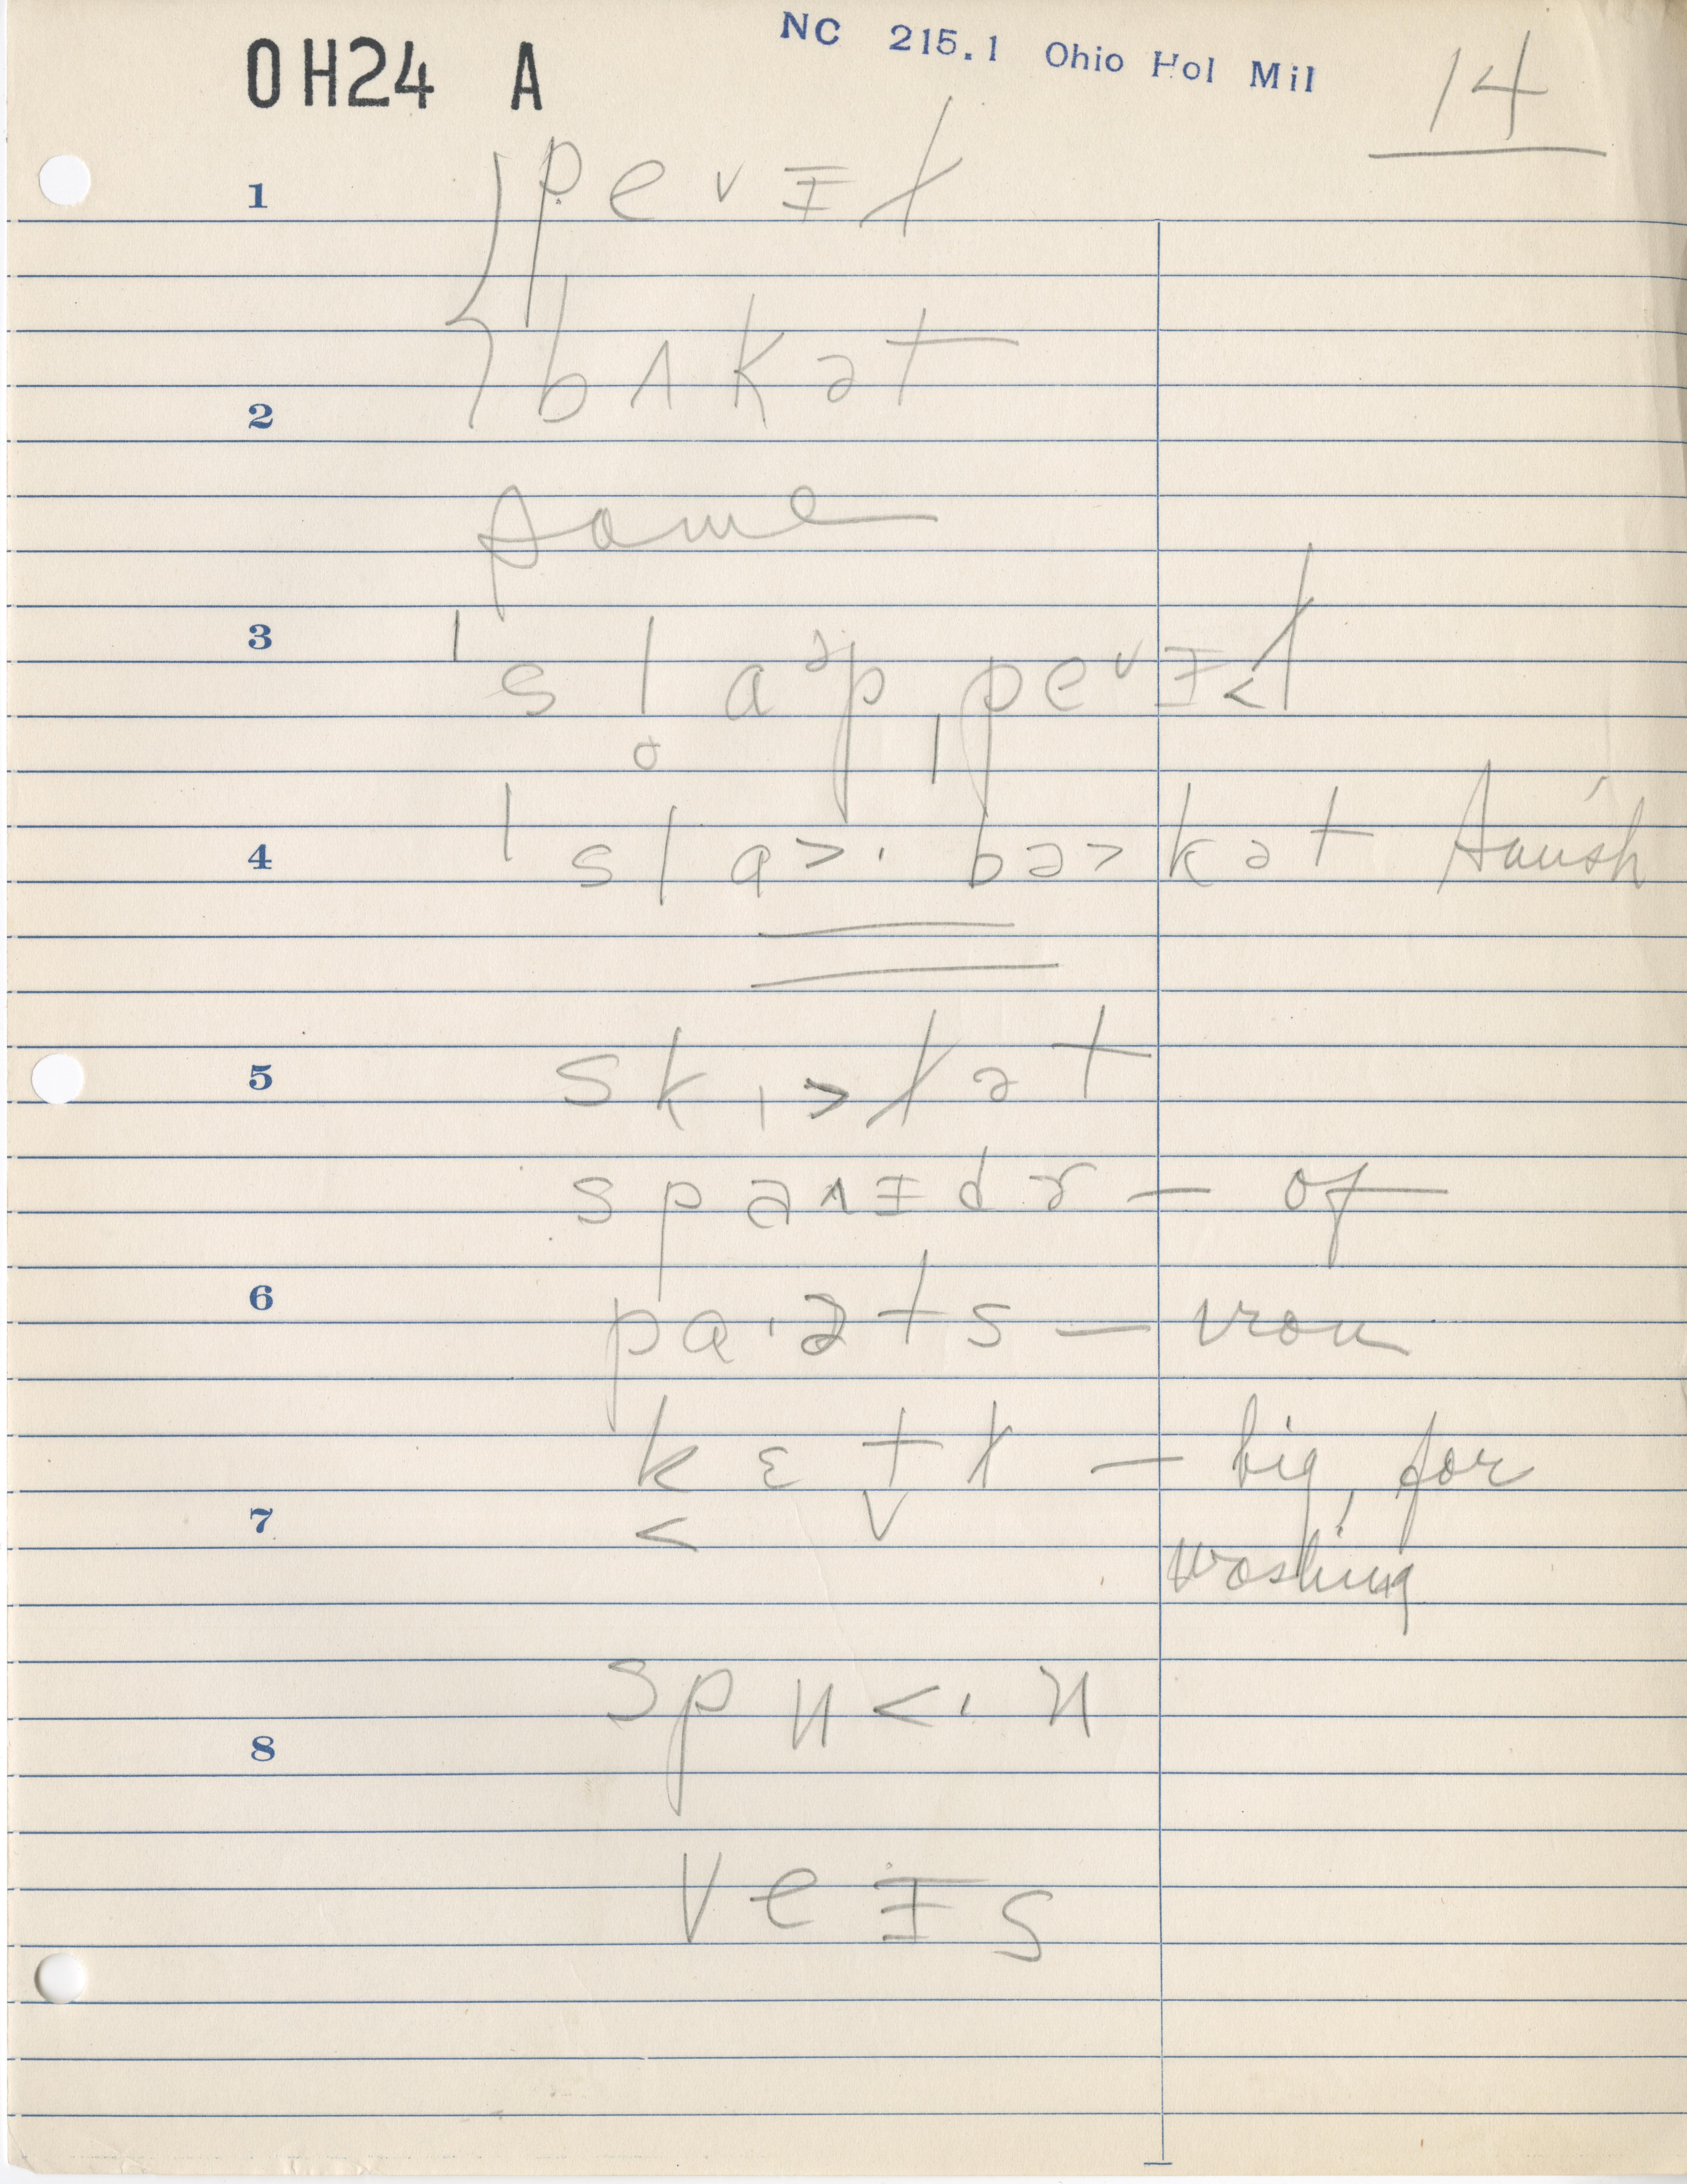 OH24 A
NC 215.1 Ohio Hol Mil
14
1 pevɪɫ
2 bʌkət
same
3 ˈslaᵊpˌpeᵛɪ˂ɫ
4 ˈsla˃· bə˃kət Amish
5 skɪ˃ɫət
spaᴧɪdɚ — of
6 pɑ·əts — iron
kɛtɫ — big, for
7 < v
washing
8 spu˂·n
veɪs